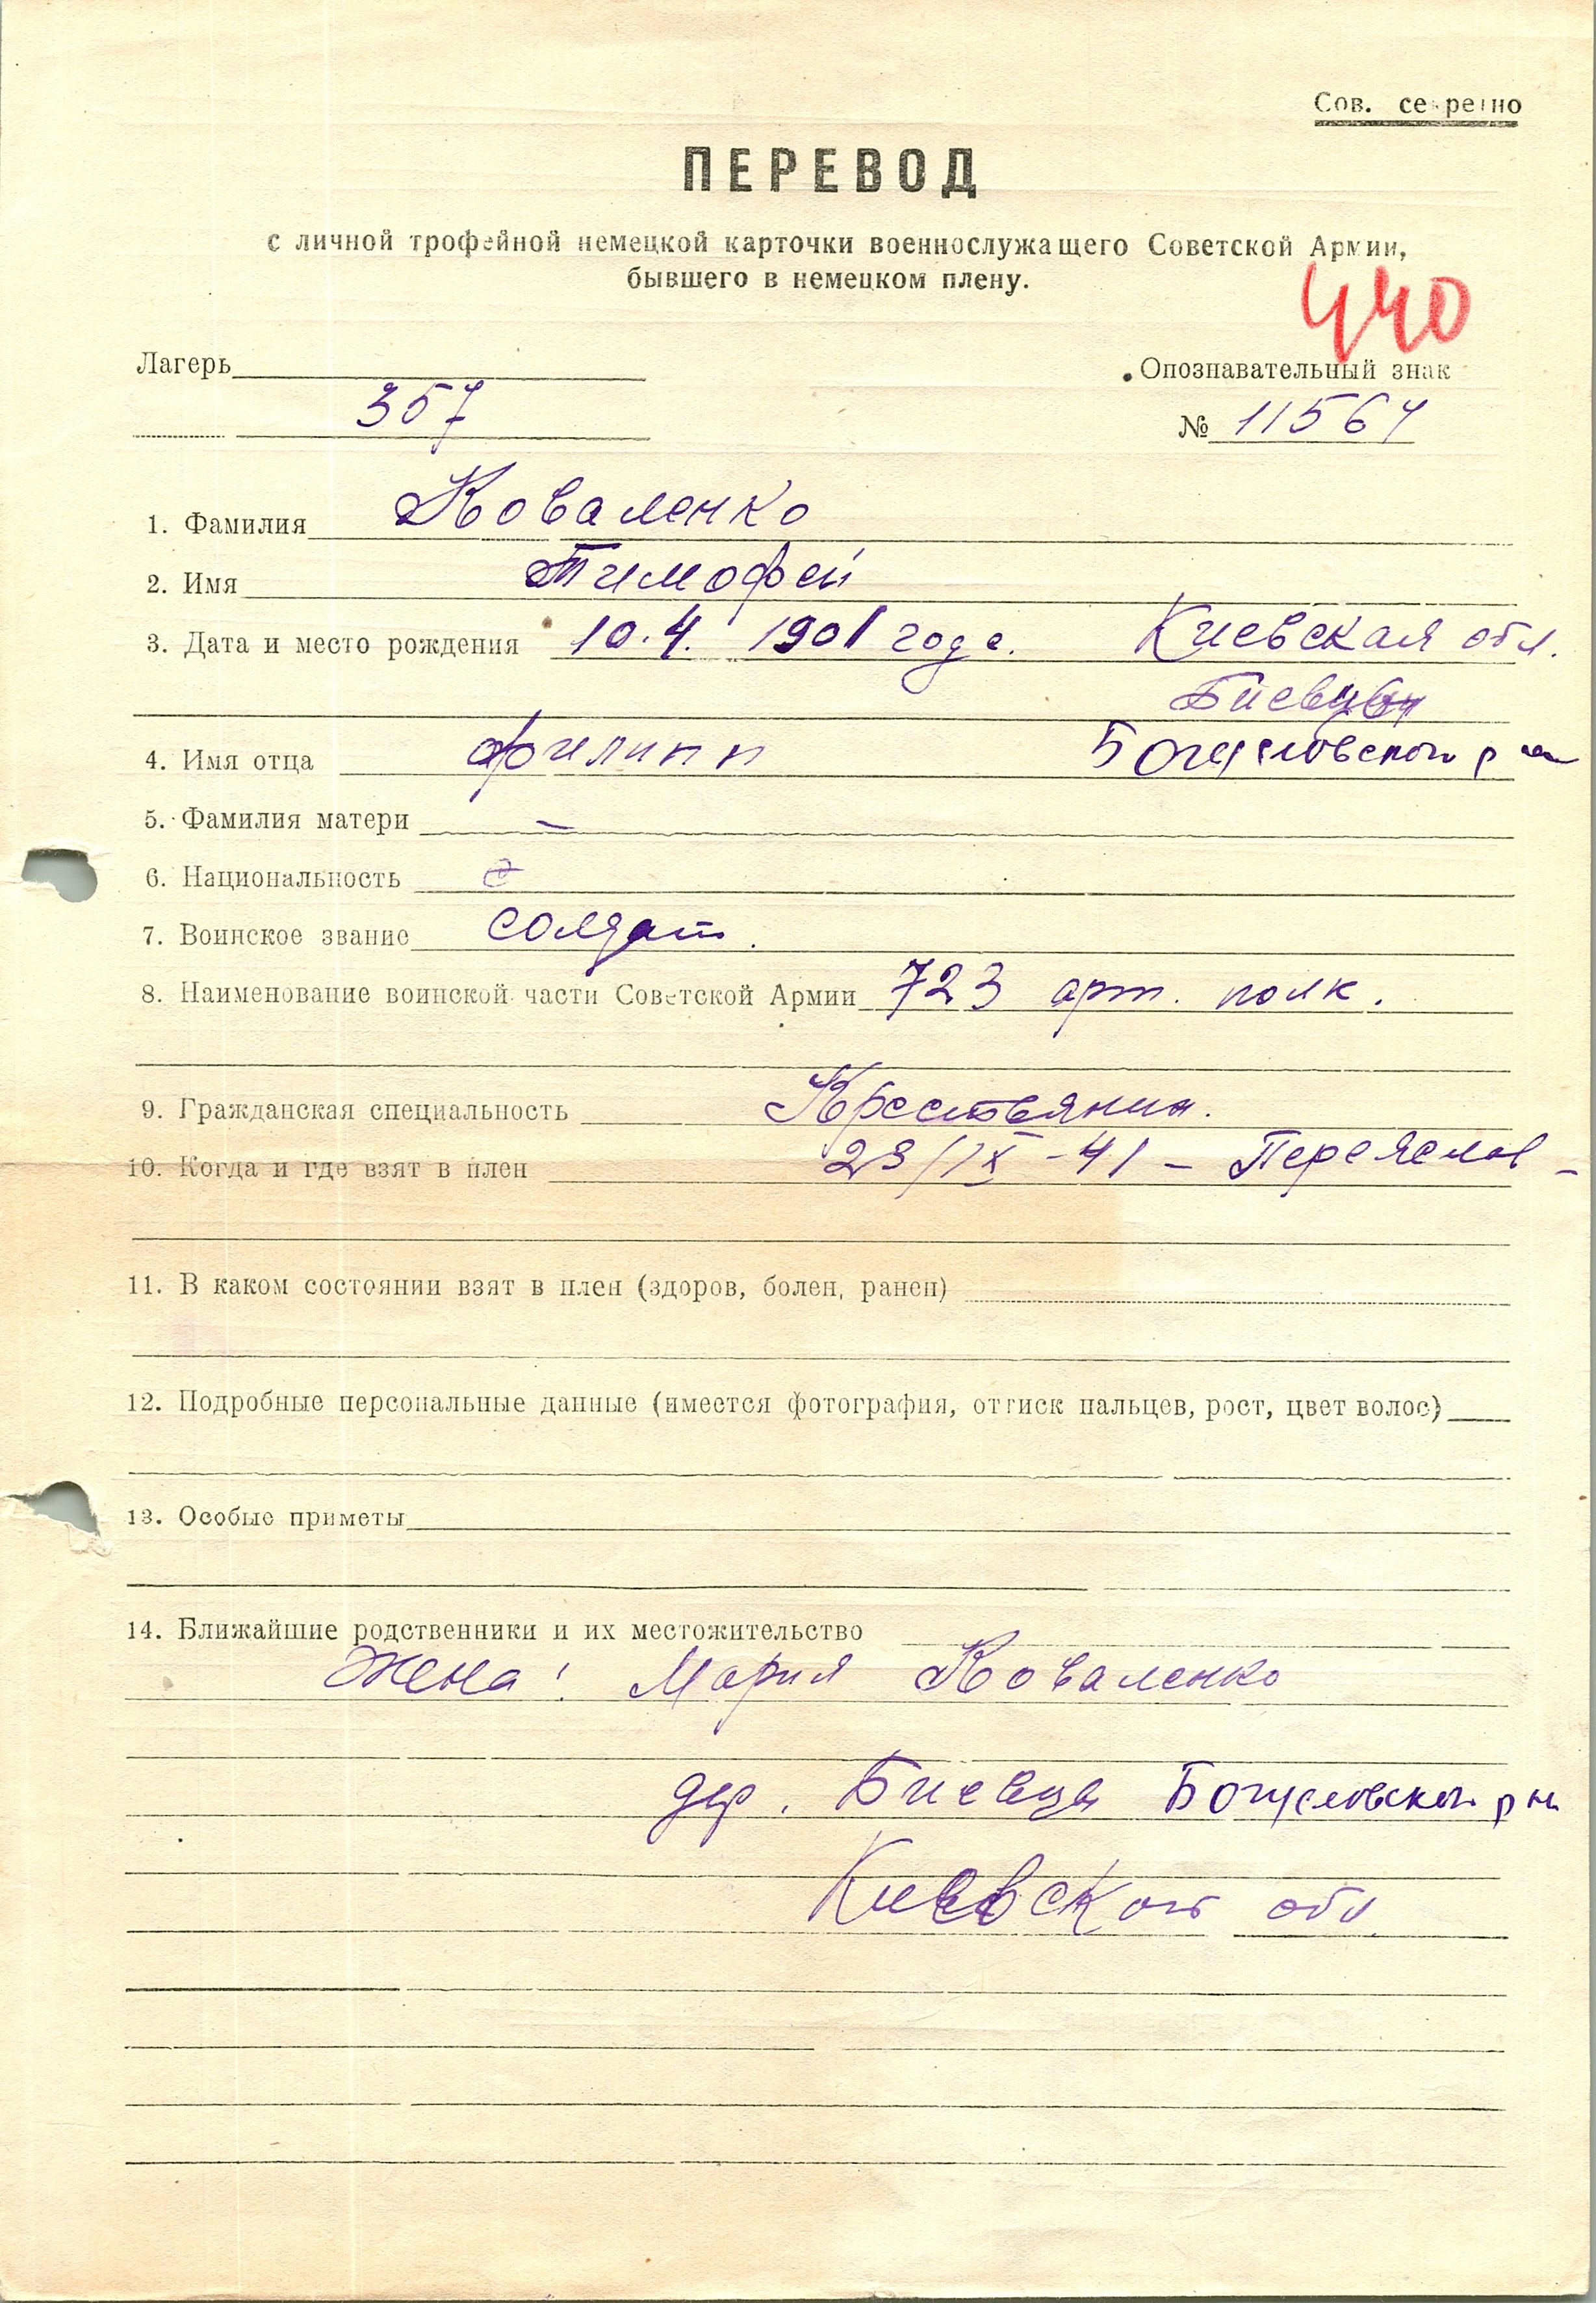 Сов. секретно
ПЕРЕВОД
с личной трофейной немецкой карточки военнослужащего Советской Армии,
бывшего в немецком плену.
440
Лагерь
Опознавательный знак
357
№ 11564
1. Фамилия Коваленко
2. Имя Тимофей
3. Дата и место рождения 10.4. 1901 года. Киевская обл.
Биевцы
4. Имя отца Филипп Богуславского р на
5. Фамилия матери —
6. Национальность
7. Воинское звание солдат.
8. Наименование воинской части Советской Армии 723 арт. полк.
9. Гражданская специальность Крестьянин.
10. Когда и где взят в плен 23/IX-41 - Переяслав -
11. В каком состоянии взят в плен (здоров, болен, ранен)
12. Подробные персональные данные (имеется фотография, оттиск пальцев, рост, цвет волос)
13. Особые приметы
14. Ближайшие родственники и их местожительство
Жена: Мария Коваленко
дер. Биевца Богуславского р на
Киевской обл.